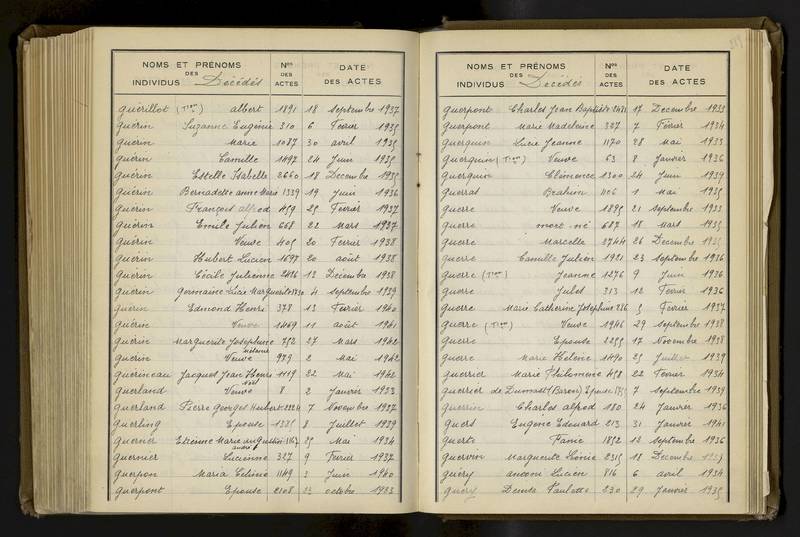 NOMS ET PRÉNOMS DES INDIVIDUS Décédés Nos DES ACTES DATE DES ACTES
Guérillot (Tion) albert 1891 18 septembre 1937
Guérin Suzanne Eugénie 310 6 Fevrier 1935
Guérin Marie 1087 30 avril 1935
Guérin Camille 1497 24 Juin 1935
Guérin Estelle Isabelle 2660 18 Decembre 1935
Guérin Bernadette anne Marie 1339 19 Juin 1936
Guérin François alfred 459 25 Fevrier 1937
Guérin Emile Julien 668 22 Mars 1937
Guérin Veuve 405 20 Fevrier 1938
Guérin Hubert Lucien 1697 20 août 1938
Guérin Cécile Julienne 2486 13 Décembre 1938
Guérin Germaine Lucie Marguerite 1830 4 septembre 1939
Guérin Edmond Henri 378 13 Fevrier 1940
Guérin Veuve 1469 11 août 1941
Guérin Marguerite Josephine 752 27 Mars 1942
Guérin Veuve 979 2 Mai 1942
Guérineau Jacques Jean Henri Noël 1119 22 Mai 1942
Guerland Veuve 8 2 Janvier 1933
Guerland Pierre Georges Hubert 2224 7 Novembre 1937
Guerling Epouse 1325 8 Juillet 1939
Guernier Etienne Marie augustin andré 1167 25 Mai 1934
Guernier Lucienne 327 9 Fevrier 1937
Guerpon Maria Celinie 1149 3 Juin 1940
Guerpont Epouse 2108 23 octobre 1933
NOMS ET PRÉNOMS DES INDIVIDUS Décédés Nos DES ACTES DATE DES ACTES
Guerpont Charles Jean Baptiste 2481 17 Decembre 1933
Guerpont Marie Madeleine 327 7 Février 1934
Guerquin Lucie Jeanne 1170 28 Mai 1933
Guerquin (Tion) Veuve 63 8 Janvier 1936
Guerquin Clémence 1300 24 Juin 1939
Guerrat Brahim 1106 1 Mai 1935
Guerre Veuve 1895 21 septembre 1933
Guerre mort-né 687 18 Mars 1935
Guerre Marcelle 2744 26 Decembre 1935
Guerre Camille Julien 1921 23 septembre 1936
Guerre (Tion) Jeanne 1276 9 Juin 1936
Guerre Jules 313 12 Fevrier 1936
Guerre Marie Catherine Josephine 286 3 Fevrier 1937
Guerre (Tion) Veuve 1946 29 septembre 1938
Guerre Epouse 2255 17 Novembre 1938
Guerre Marie Helène 1490 25 Juillet 1939
Guerrier Marie Philomene 458 22 Fevrier 1934
Guerrier de Dumast (Baron) Epouse 1855 7 septembre 1939
Guerrin Charles alfred 180 24 Janvier 1936
Guers Eugene Edouard 213 31 Janvier 1941
Guerts Fanie 1852 13 septembre 1936
Guervin Marguerite Léonie 2315 18 Decembre 1937
Guéry Lucien 816 6 avril 1934
Guéry Denise Paulette 230 29 Janvier 1935